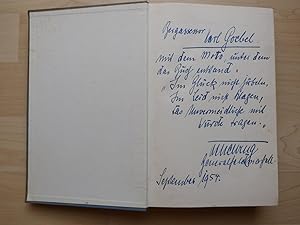 Bergassessor
Karl Goebel.
mit dem Moto, unter dem
das Buch entstand.
"Im Glück nicht jubeln,
Im Leid nicht klagen,
das Unvermeidliche mit
Würde tragen."
Generalfeldmarschall
September 1954.